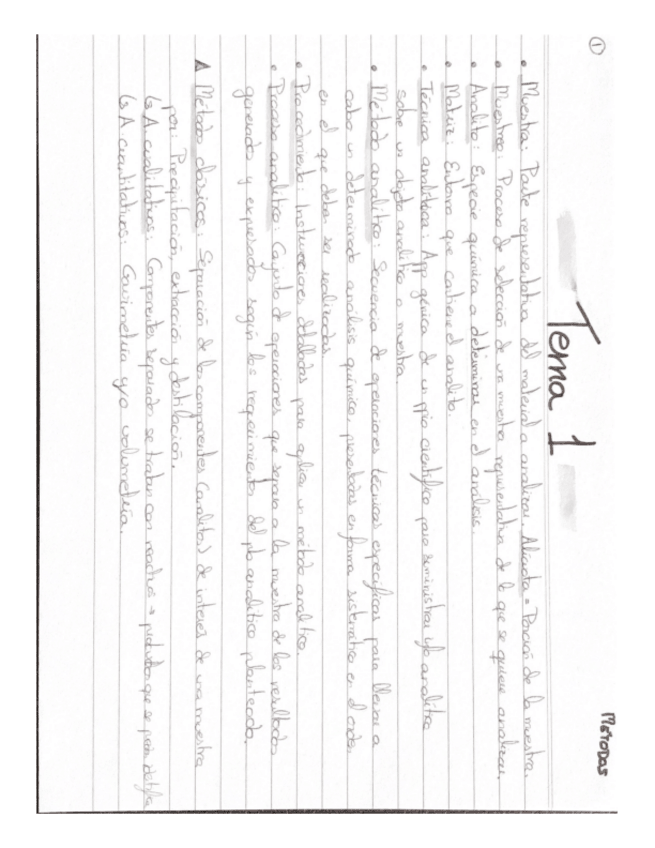 ①
METODOS
Tema 1
• Muestra: Parte representativa del material a analizar. Alicuota = Porción de la muestra.
• Muestreo: Proceso de selección de una muestra representativa de lo que se quiere analizar.
• Analito: Especie química a determinar en el análisis.
• Matriz: Entorno que contiene el analito.
• Técnica analítica: App génica de un ppio científico para suministrar info analítica
sobre un objeto analítico o muestra.
• Método analítico: Secuencia de operaciones técnicas específicas para llevar a
cabo un determinado análisis químico, presentadas en forma sistemática en el orden
en el que deben ser realizadas.
• Procedimiento: Instrucciones detalladas para aplicar un método analítico.
• Proceso analítico: Conjunto de operaciones que separa a la muestra de los resultados
generados y expresados según los requerimientos del pb analítico planteado.
▲ Métodos clásicos: Separación de los componentes (analitos) de interés de una muestra
por: Precipitación, extracción y destilación.
↳ A. cualitativos: Componentes separados se tratan con reactivos → productos que se
↳ A. cuantitativos: Gravimetría y/o volumetría.